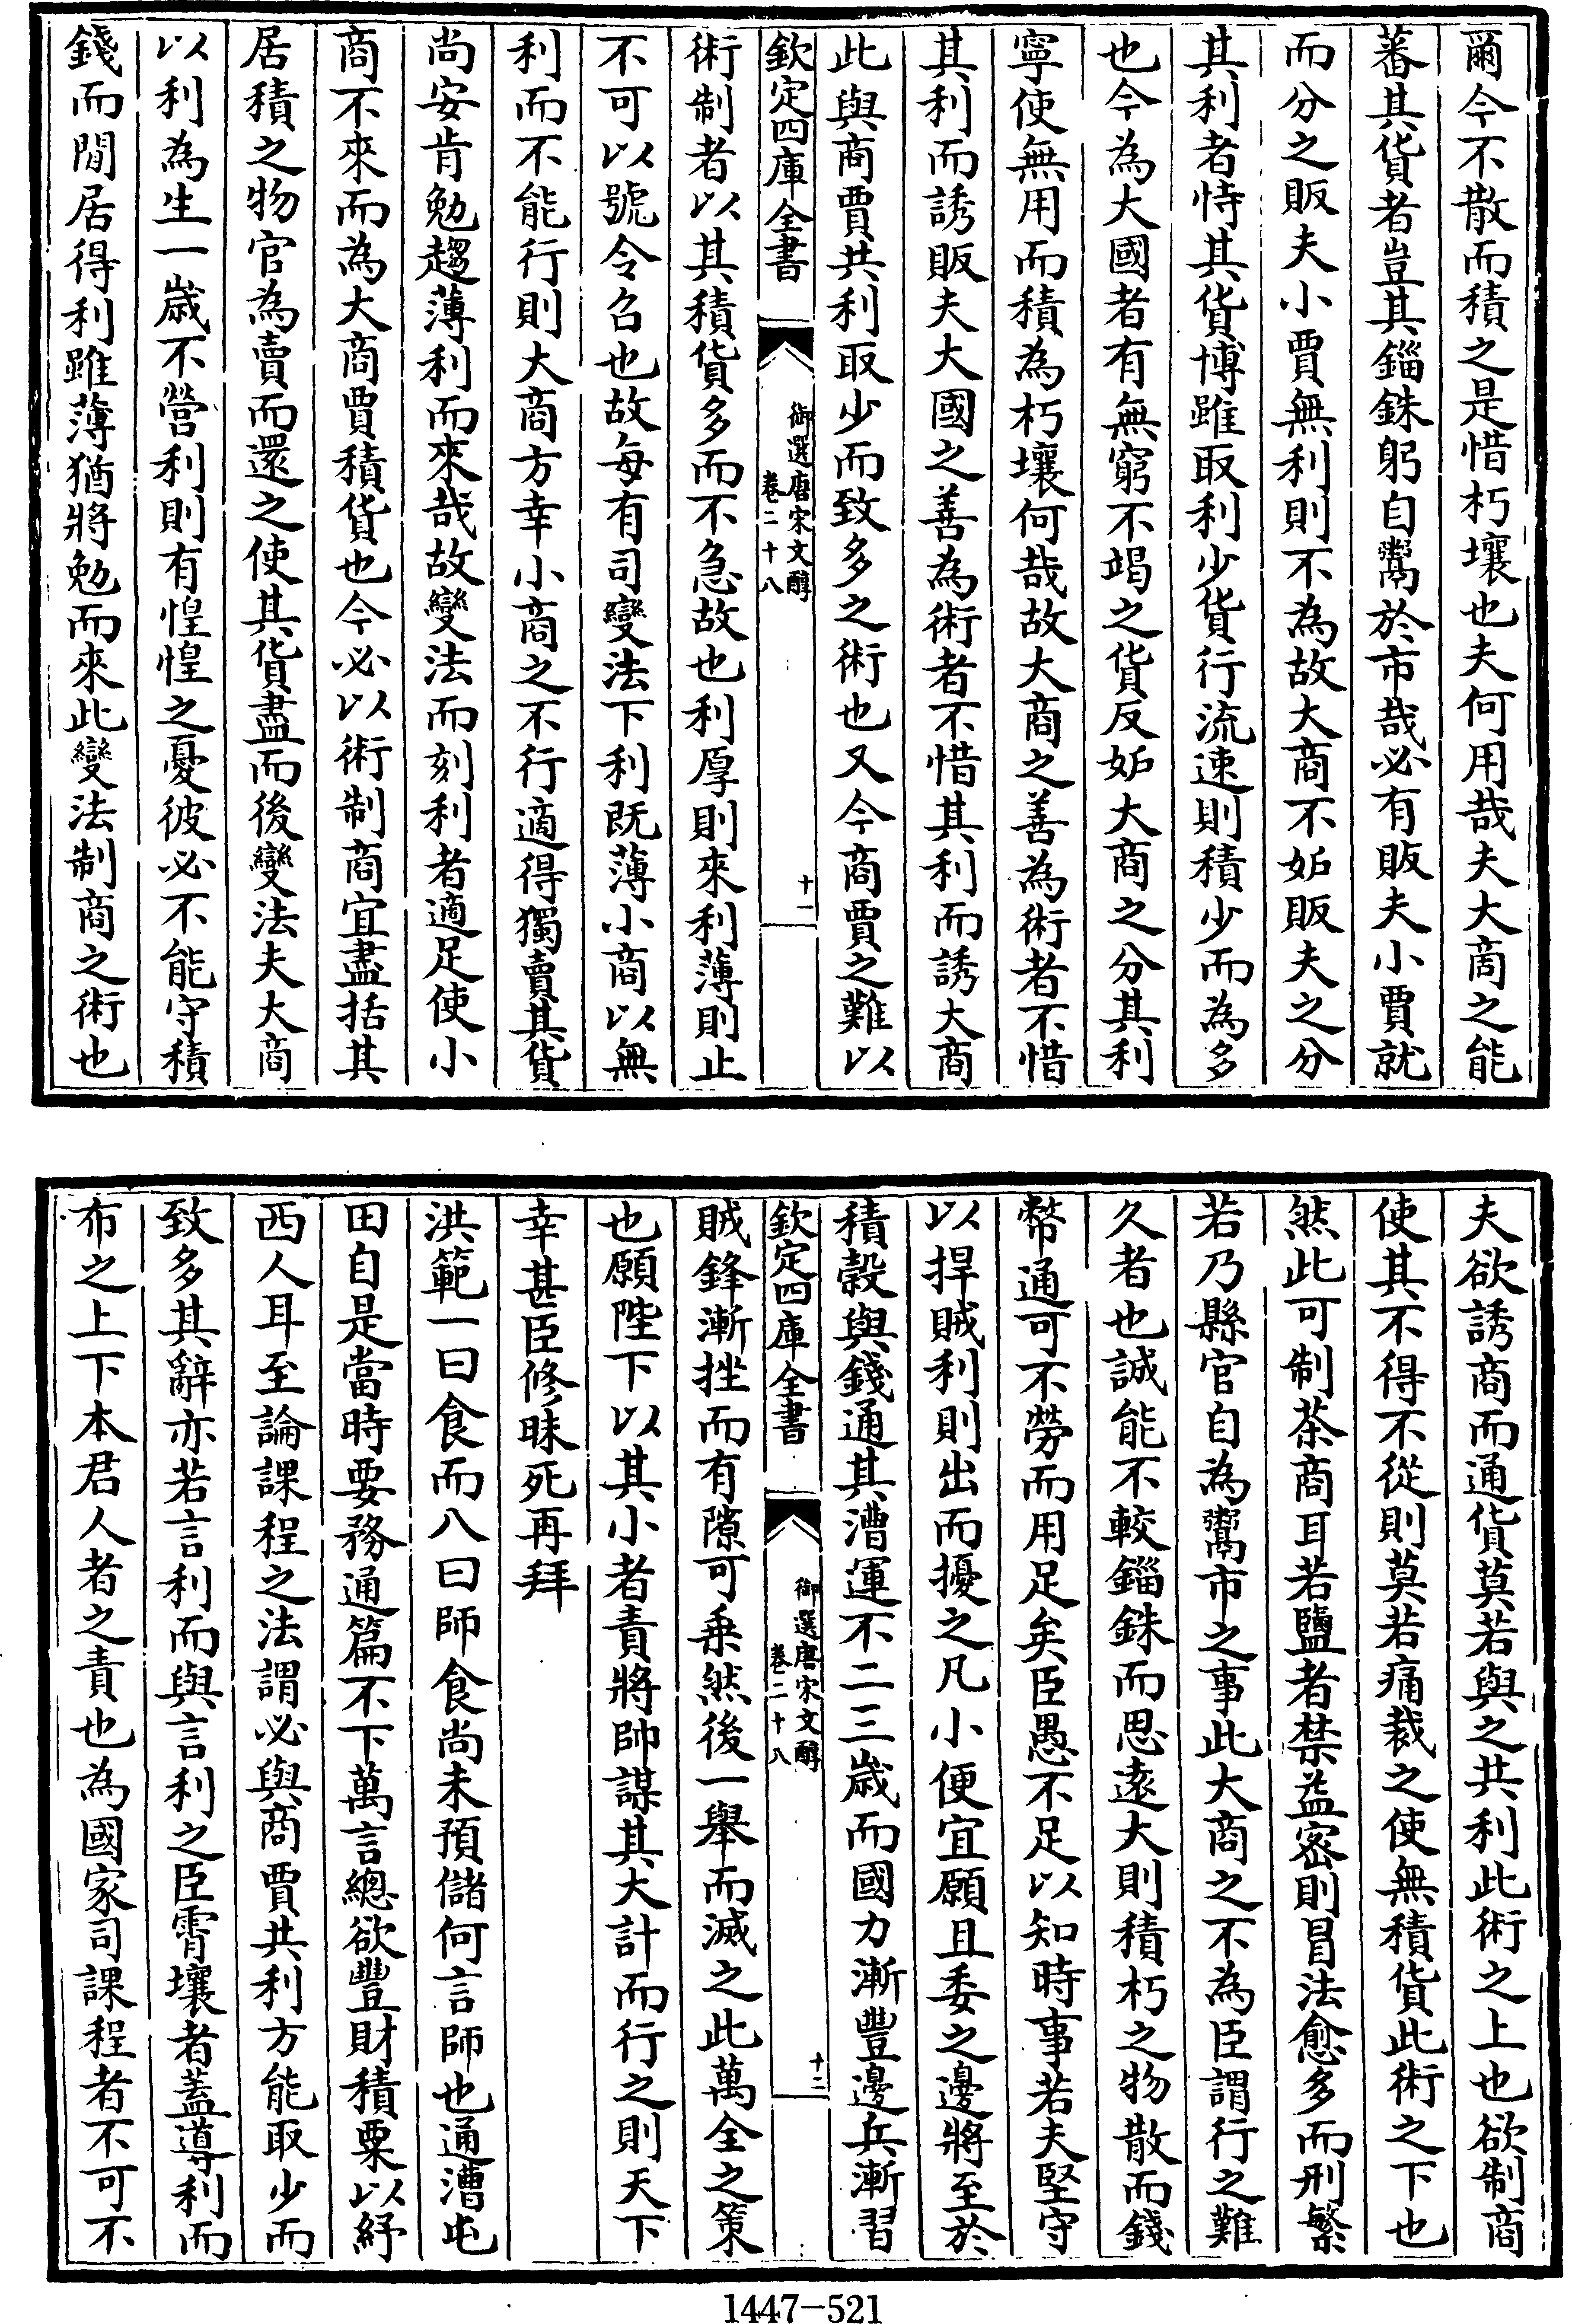 爾今不散而積之是惜朽壤也夫何用哉夫大商之能
蕃其貨者豈其錙銖躬自鬻於市哉必有販夫小賈就
而分之販夫小賈無利則不為故大商不妬販夫之分
其利者恃其貨博雖取利少貨行流速則積少而為多
也今為大國者有無窮不竭之貨反妬大商之分其利
寧使無用而積為朽壤何哉故大商之善為術者不惜
其利而誘販夫大國之善為術者不惜其利而誘大商
此與商賈共利取少而致多之術也又今商賈之難以
欽定四庫全書
御選唐宋文醇
卷二十八
十一
術制者以其積貨多而不急故也利厚則來利薄則止
不可以號令召也故每有司變法下利既薄小商以無
利而不能行則大商方幸小商之不行適得獨賣其貨
尚安肯勉趨薄利而來哉故變法而刻利者適足使小
商不來而為大商賈積貨也今必以術制商宜盡括其
居積之物官為賣而還之使其貨盡而後變法夫大商
以利為生一歲不營利則有惶惶之憂彼必不能守積
錢而閒居得利雖薄猶將勉而來此變法制商之術也
夫欲誘商而通貨莫若與之共利此術之上也欲制商
使其不得不從則莫若痛裁之使無積貨此術之下也
然此可制茶商耳若鹽者禁益密則冒法愈多而刑繁
若乃縣官自為鬻市之事此大商之不為臣謂行之難
久者也誠能不較錙銖而思遠大則積朽之物散而錢
幣通可不勞而用足矣臣愚不足以知時事若夫堅守
以捍賊利則出而擾之凡小便宜願且委之邊將至於
積穀與錢通其漕運不二三歲而國力漸豐邊兵漸習
欽定四庫全書
御選唐宋文醇
卷二十八
十二
賊鋒漸挫而有隙可乗然後一舉而滅之此萬全之策
也願陛下以其小者責將帥謀其大計而行之則天下
幸甚臣修昧死再拜
洪範一曰食而八曰師食尚未預儲何言師也通漕屯
田自是當時要務通篇不下萬言總欲豐財積粟以紓
西人耳至論課程之法謂必與商賈共利方能取少而
致多其辭亦若言利而與言利之臣霄壤者蓋導利而
布之上下本君人者之責也為國家司課程者不可不
1447—521